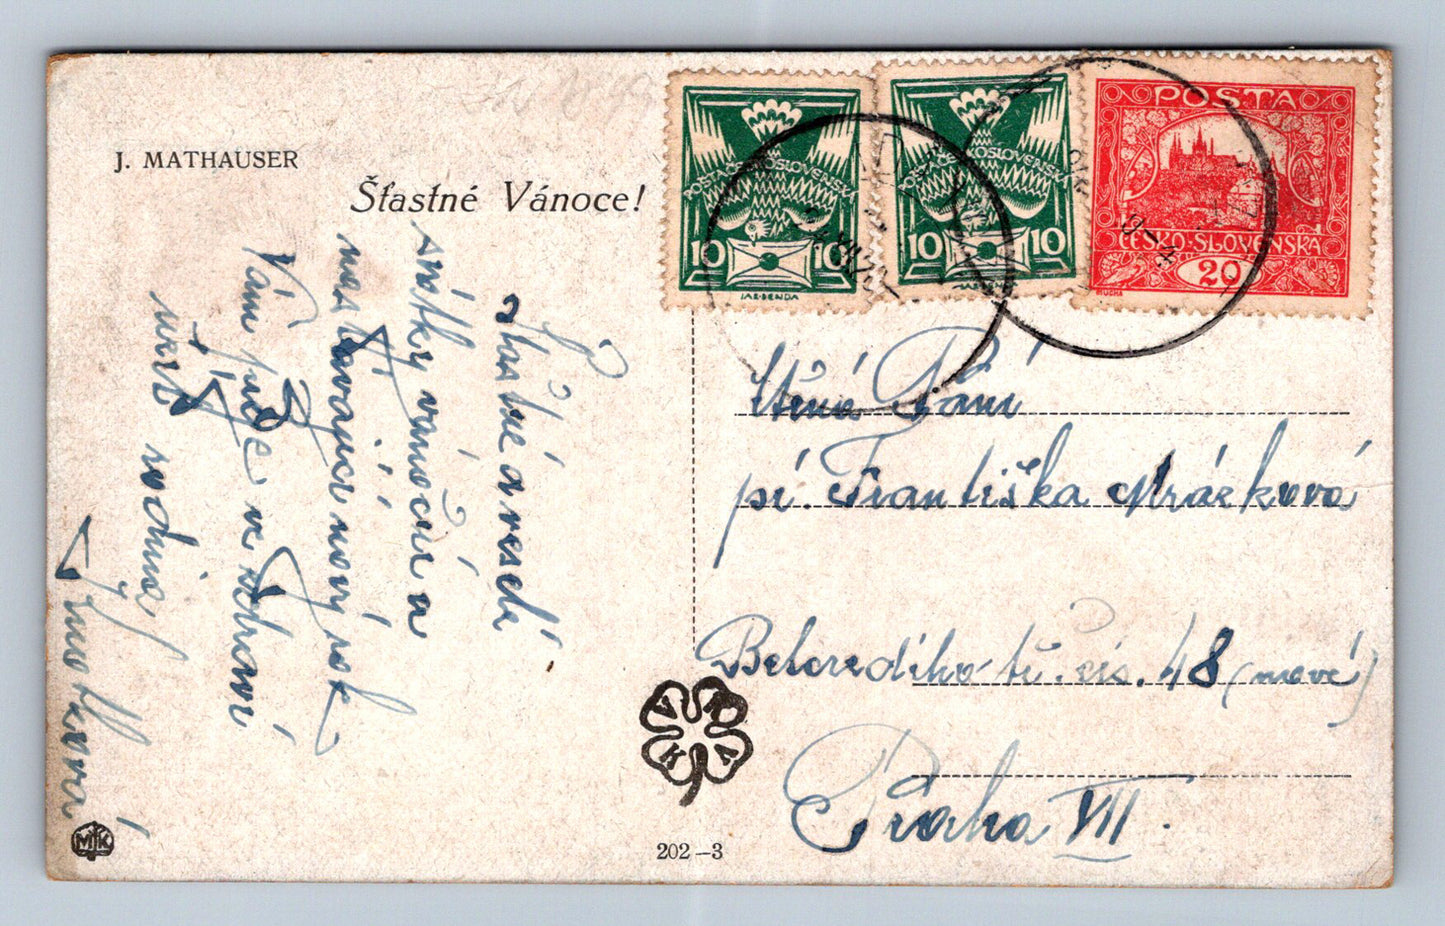 J. MATHAUSER
Šťastné Vánoce!
POŠTA ČESKOSLOVENSKÁ
10 10
JAK·BENDA
POŠTA ČESKOSLOVENSKÁ
10 10
POŠTA
ČESKO·SLOVENSKÁ
20
Šťastné a veselé
svátky vánoční a
nastávající nový rok
Vám přeje ve zdraví
rodina
Ctěná Paní
pí. Františka Mrázková
Belcrediho tř. čís. 48 (nové)
Praha VII.
V K A
MK
202–3